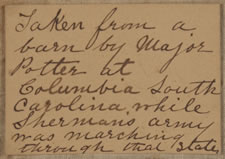 Taken from a
barn by Major
Potter at
Columbia South
Carolina, while
Shermans army
was marching
through that State,